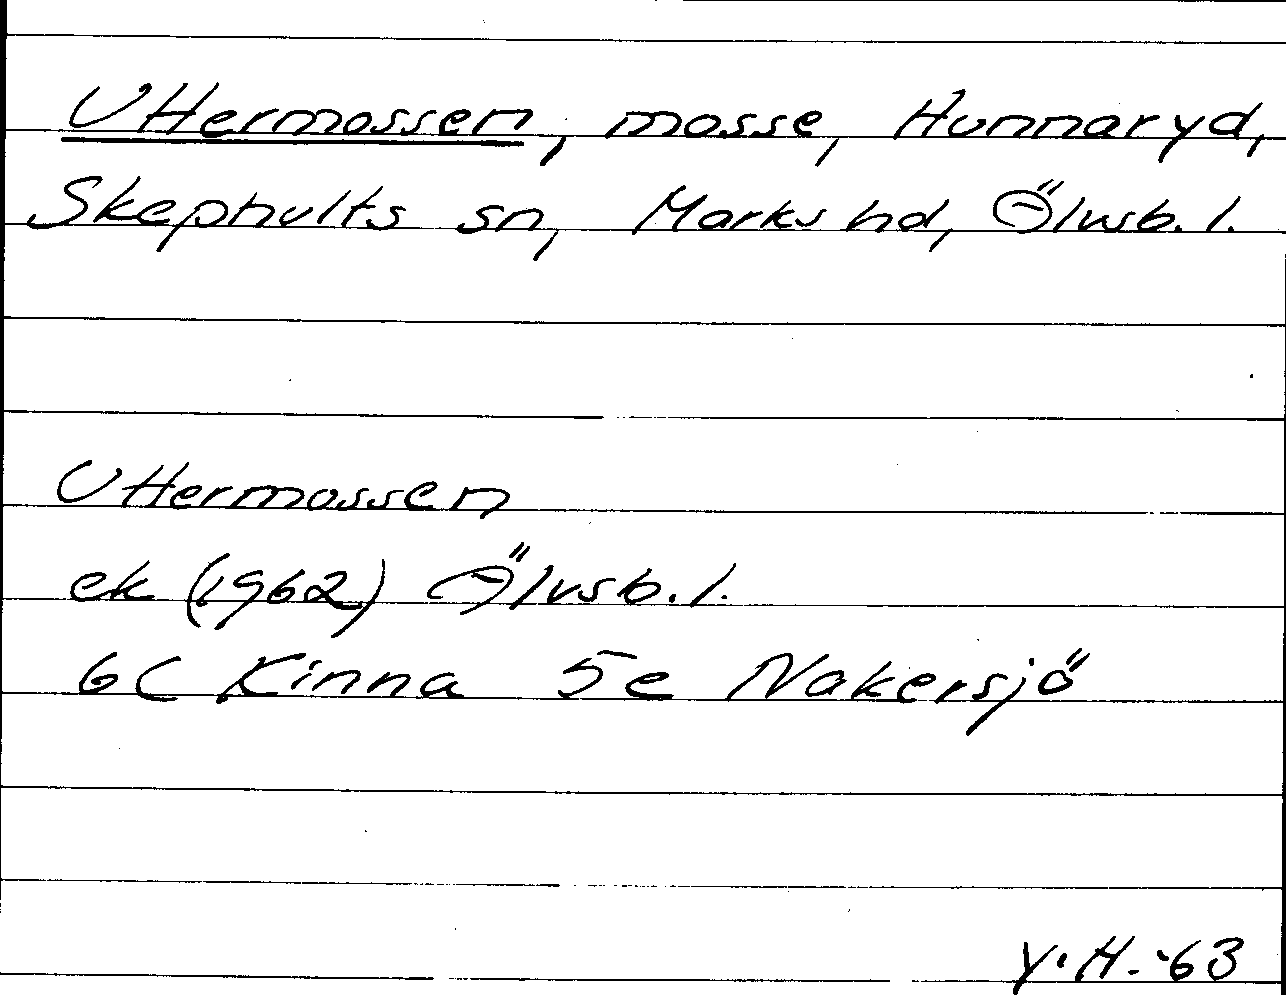 Uttermossen, mosse, Hunnaryd,
Skephults sn, Marks hd, Älvsb. l.
Uttermossen
ek (1962) Älvsb. l.
6C Kinna 5e Nakersjö
Y. H. -63